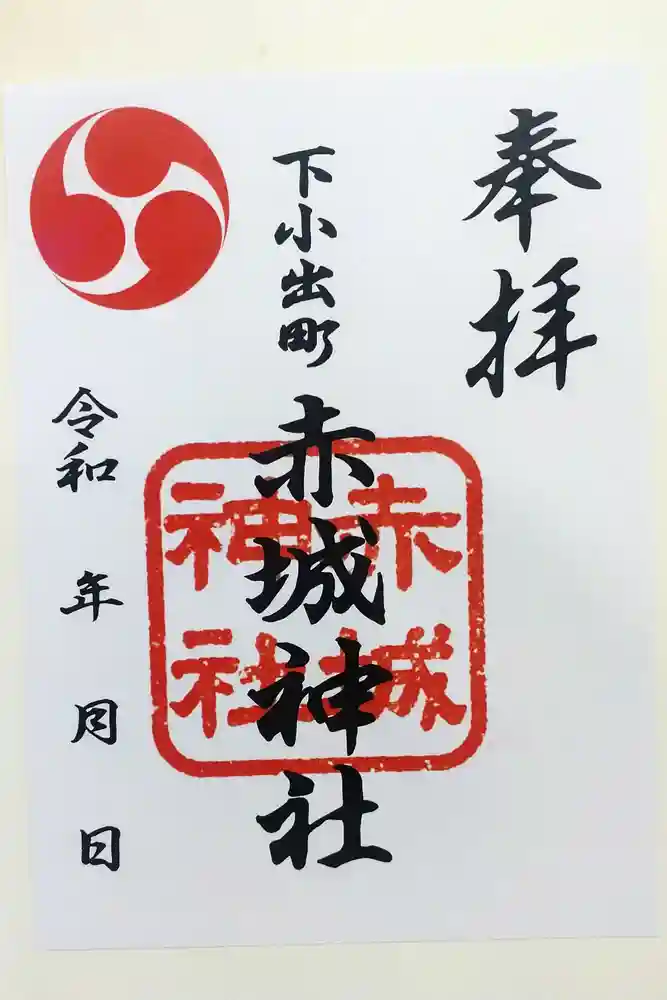 奉拝
下小出町
赤城神社
赤城
神社
令和 年 月 日